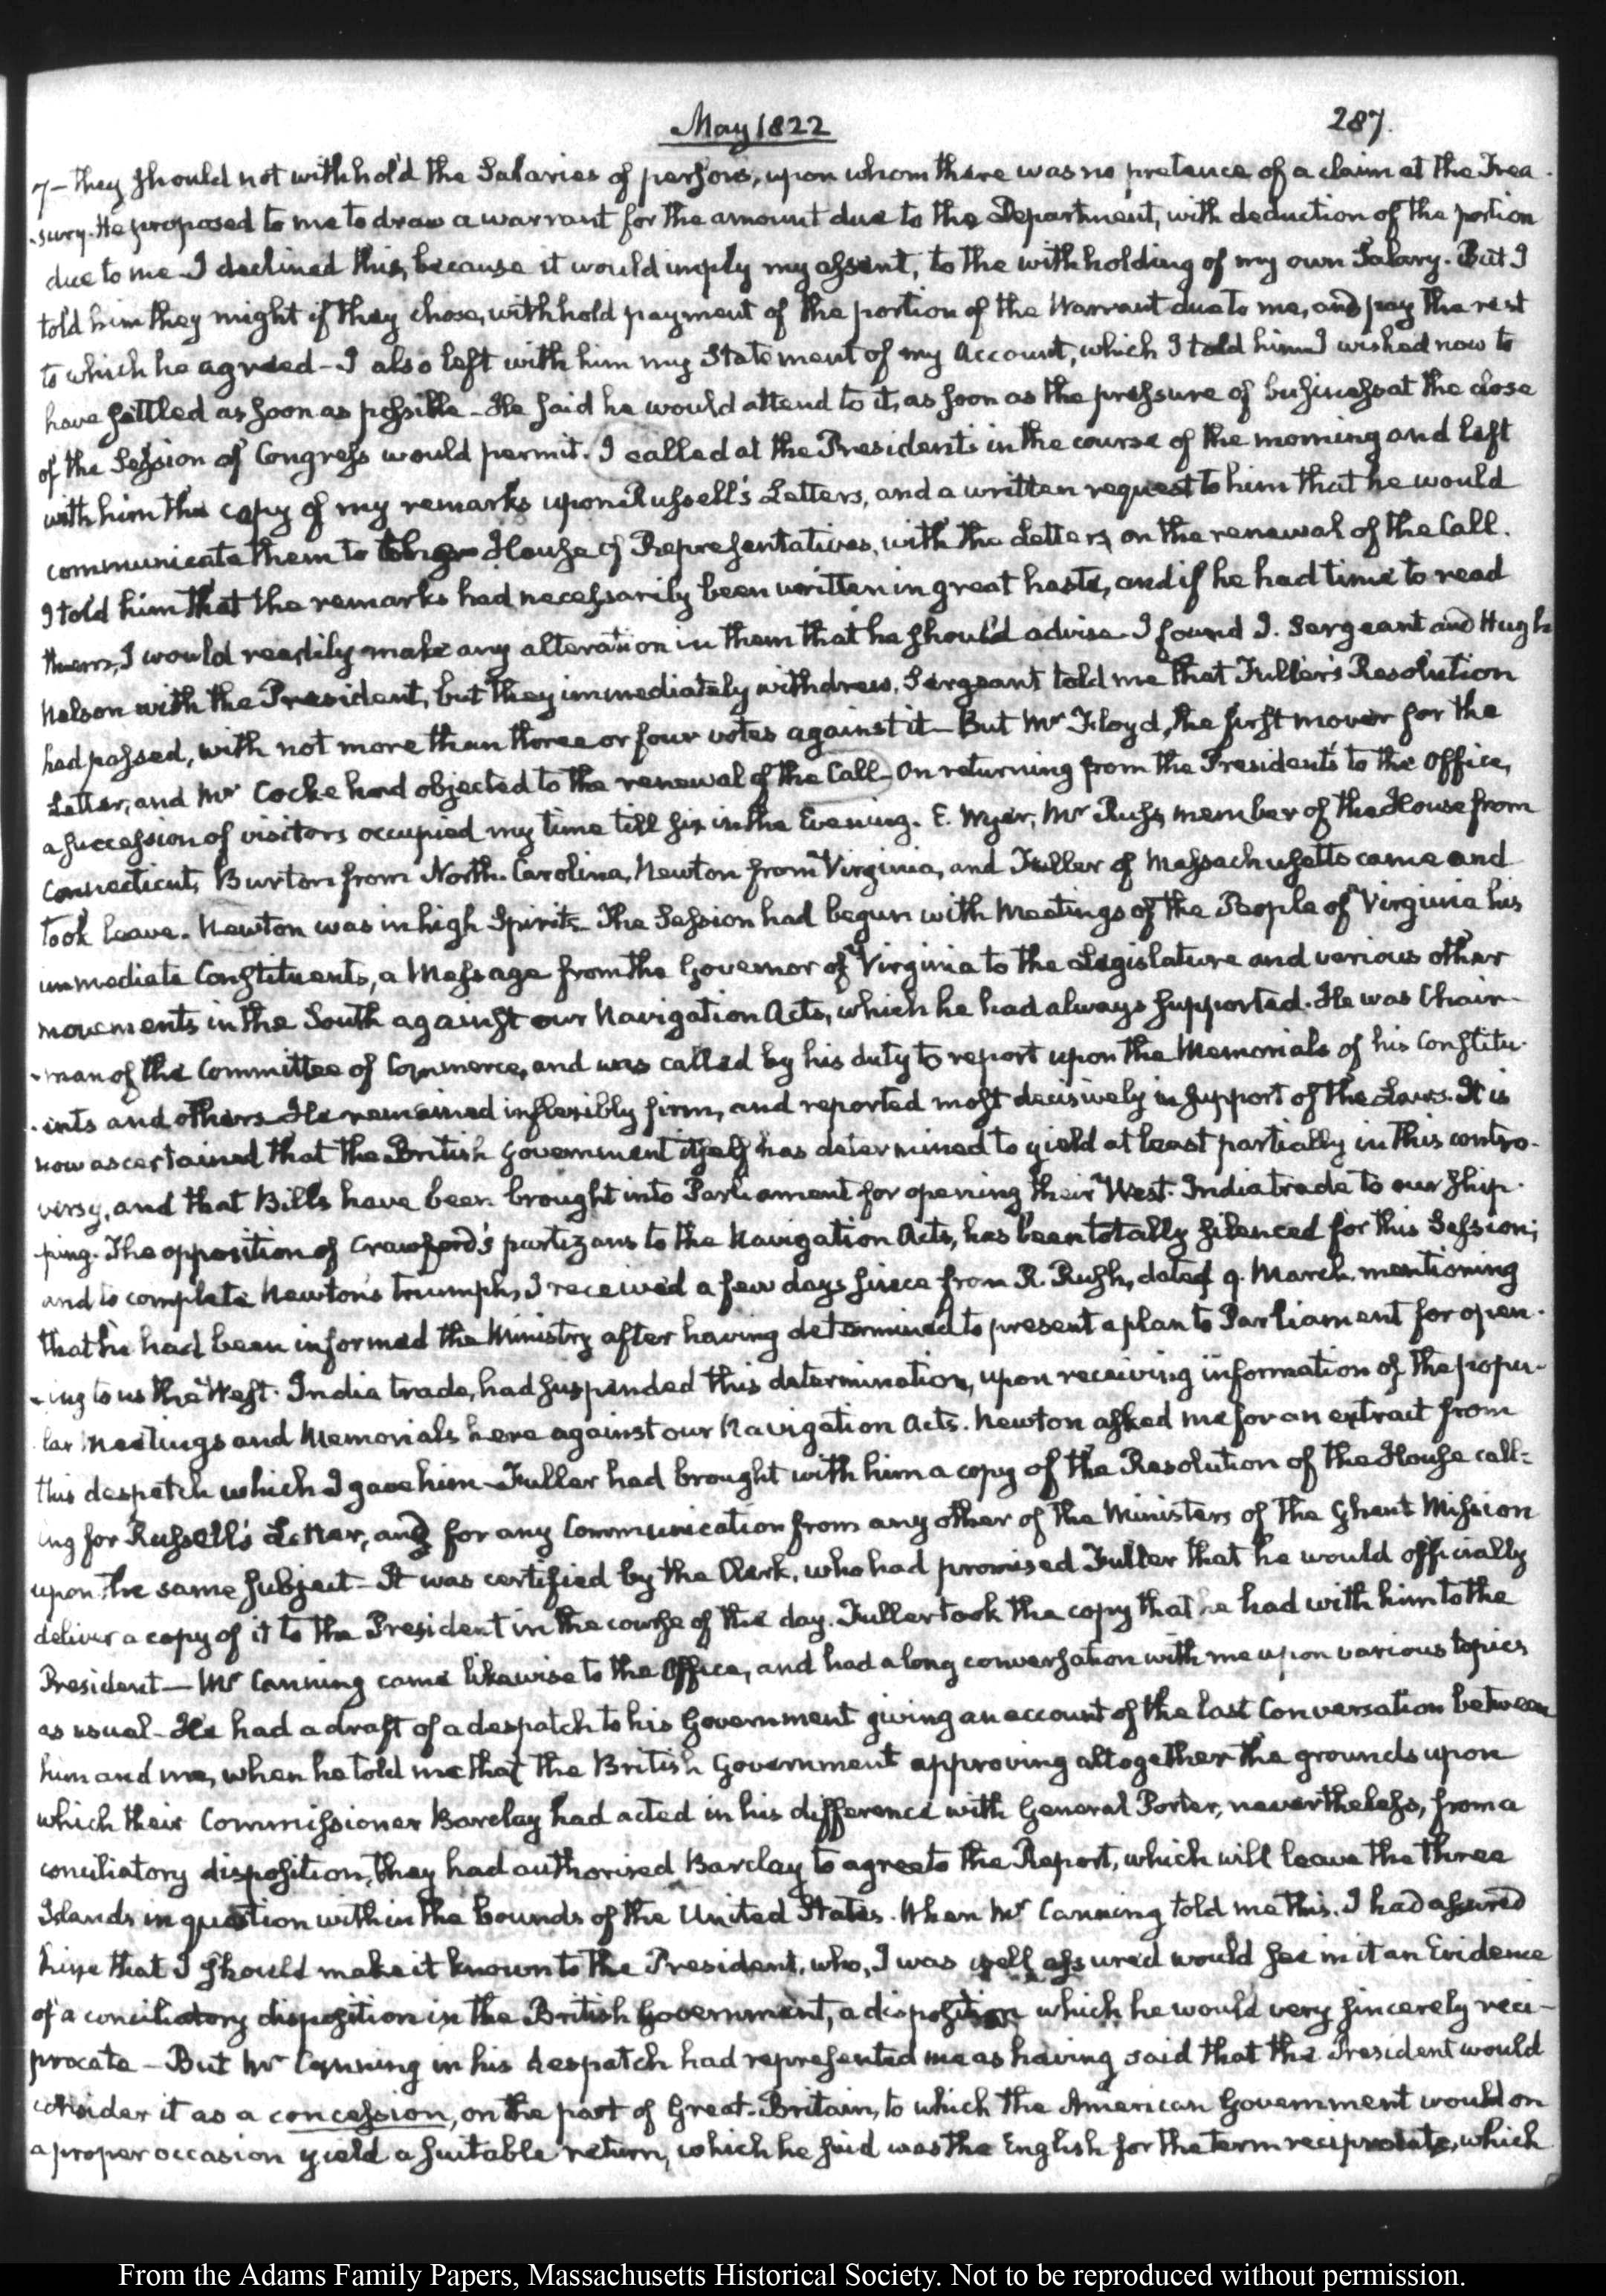 May 1822
287.
7 — they should not withhold the Salaries of persons, upon whom there was no pretence of a claim at the Trea-
-sury. He proposed to me to draw a warrant for the amount due to the Department, with deduction of the portion
due to me. I declined this, because it would imply my assent, to the withholding of my own Salary. But I
told him they might if they chose, withhold payment of the portion of the Warrant due to me, and pay the rest
to which he agreed — I also left with him my Statement of my Account, which I told him I wished now to
have settled as soon as possible — He said he would attend to it, as soon as the pressure of business at the close
of the Session of Congress would permit. I called at the President's in the course of the morning and left
with him the copy of my remarks upon Russell's Letters, and a written request to him that he would
communicate them to House of Representatives, with the Letters, on the renewal of the Call.
I told him that the remarks had necessarily been written in great haste, and if he had time to read
them, I would readily make any alteration in them that he should advise. I found J. Sergeant and Hugh
Nelson with the President, but they immediately withdrew. Sergeant told me that Fuller's Resolution
had passed, with not more than three or four votes against it — But Mr Floyd, the first mover for the
Letter, and Mr Cocke had objected to the renewal of the Call — On returning from the President's to the Office,
a succession of visitors occupied my time till six in the Evening. E. Wyer, Mr Russ, member of the House from
Connecticut, Burton from North-Carolina, Newton from Virginia, and Fuller of Massachusetts came and
took leave. Newton was in high Spirits. The Session had begun with Meetings of the People of Virginia his
immediate Constituents, a Message from the Governor of Virginia to the Legislature and various other
movements in the South against our Navigation Acts, which he had always supported. He was Chair-
-man of the Committee of Commerce, and was called by his duty to report upon the Memorials of his Constitu-
-ents and others. He remained inflexibly firm, and reported most decisively in support of the Laws. It is
now ascertained that the British Government itself has determined to yield at least partially in this contro-
versy, and that Bills have been brought into Parliament for opening their West-India trade to our ship-
ping. The opposition of Crawford's partizans to the Navigation Acts, has been totally silenced for this Session;
and to complete Newton's triumph, I received a few days since from R. Rush, dated 9. March, mentioning
that he had been informed the Ministry after having determined to present a plan to Parliament for open-
-ing to us the West-India trade, had suspended this determination, upon receiving information of the popu-
-lar Meetings and Memorials here against our Navigation Acts. Newton asked me for an extract from
this despatch which I gave him — Fuller had brought with him a copy of the Resolution of the House call-
ing for Russell's Letter, and for any Communication from any other of the Ministers of the Ghent Mission
upon the same subject — It was certified by the Clerk, who had promised Fuller that he would officially
deliver a copy of it to the President in the course of the day. Fuller took the copy that he had with him to the
President — Mr Canning came likewise to the Office, and had a long conversation with me upon various topics
as usual — He had a draft of a despatch to his Government giving an account of the last Conversation between
him and me, when he told me that the British Government approving altogether the grounds upon
which their Commissioner Barclay had acted in his difference with General Porter, nevertheless, from a
conciliatory disposition, they had authorised Barclay to agree to the Report, which will leave the three
Islands in question within the bounds of the United States. When Mr Canning told me this, I had assured
him that I should make it known to the President, who, I was well assured would see in it an Evidence
of a conciliatory disposition in the British Government, a disposition which he would very sincerely reci-
procate — But Mr Canning in his despatch had represented me as having said that the President would
consider it as a concession, on the part of Great-Britain, to which the American Government would on
a proper occasion yield a suitable return, which he said was the English for the term reciprocate, which
From the Adams Family Papers, Massachusetts Historical Society. Not to be reproduced without permission.